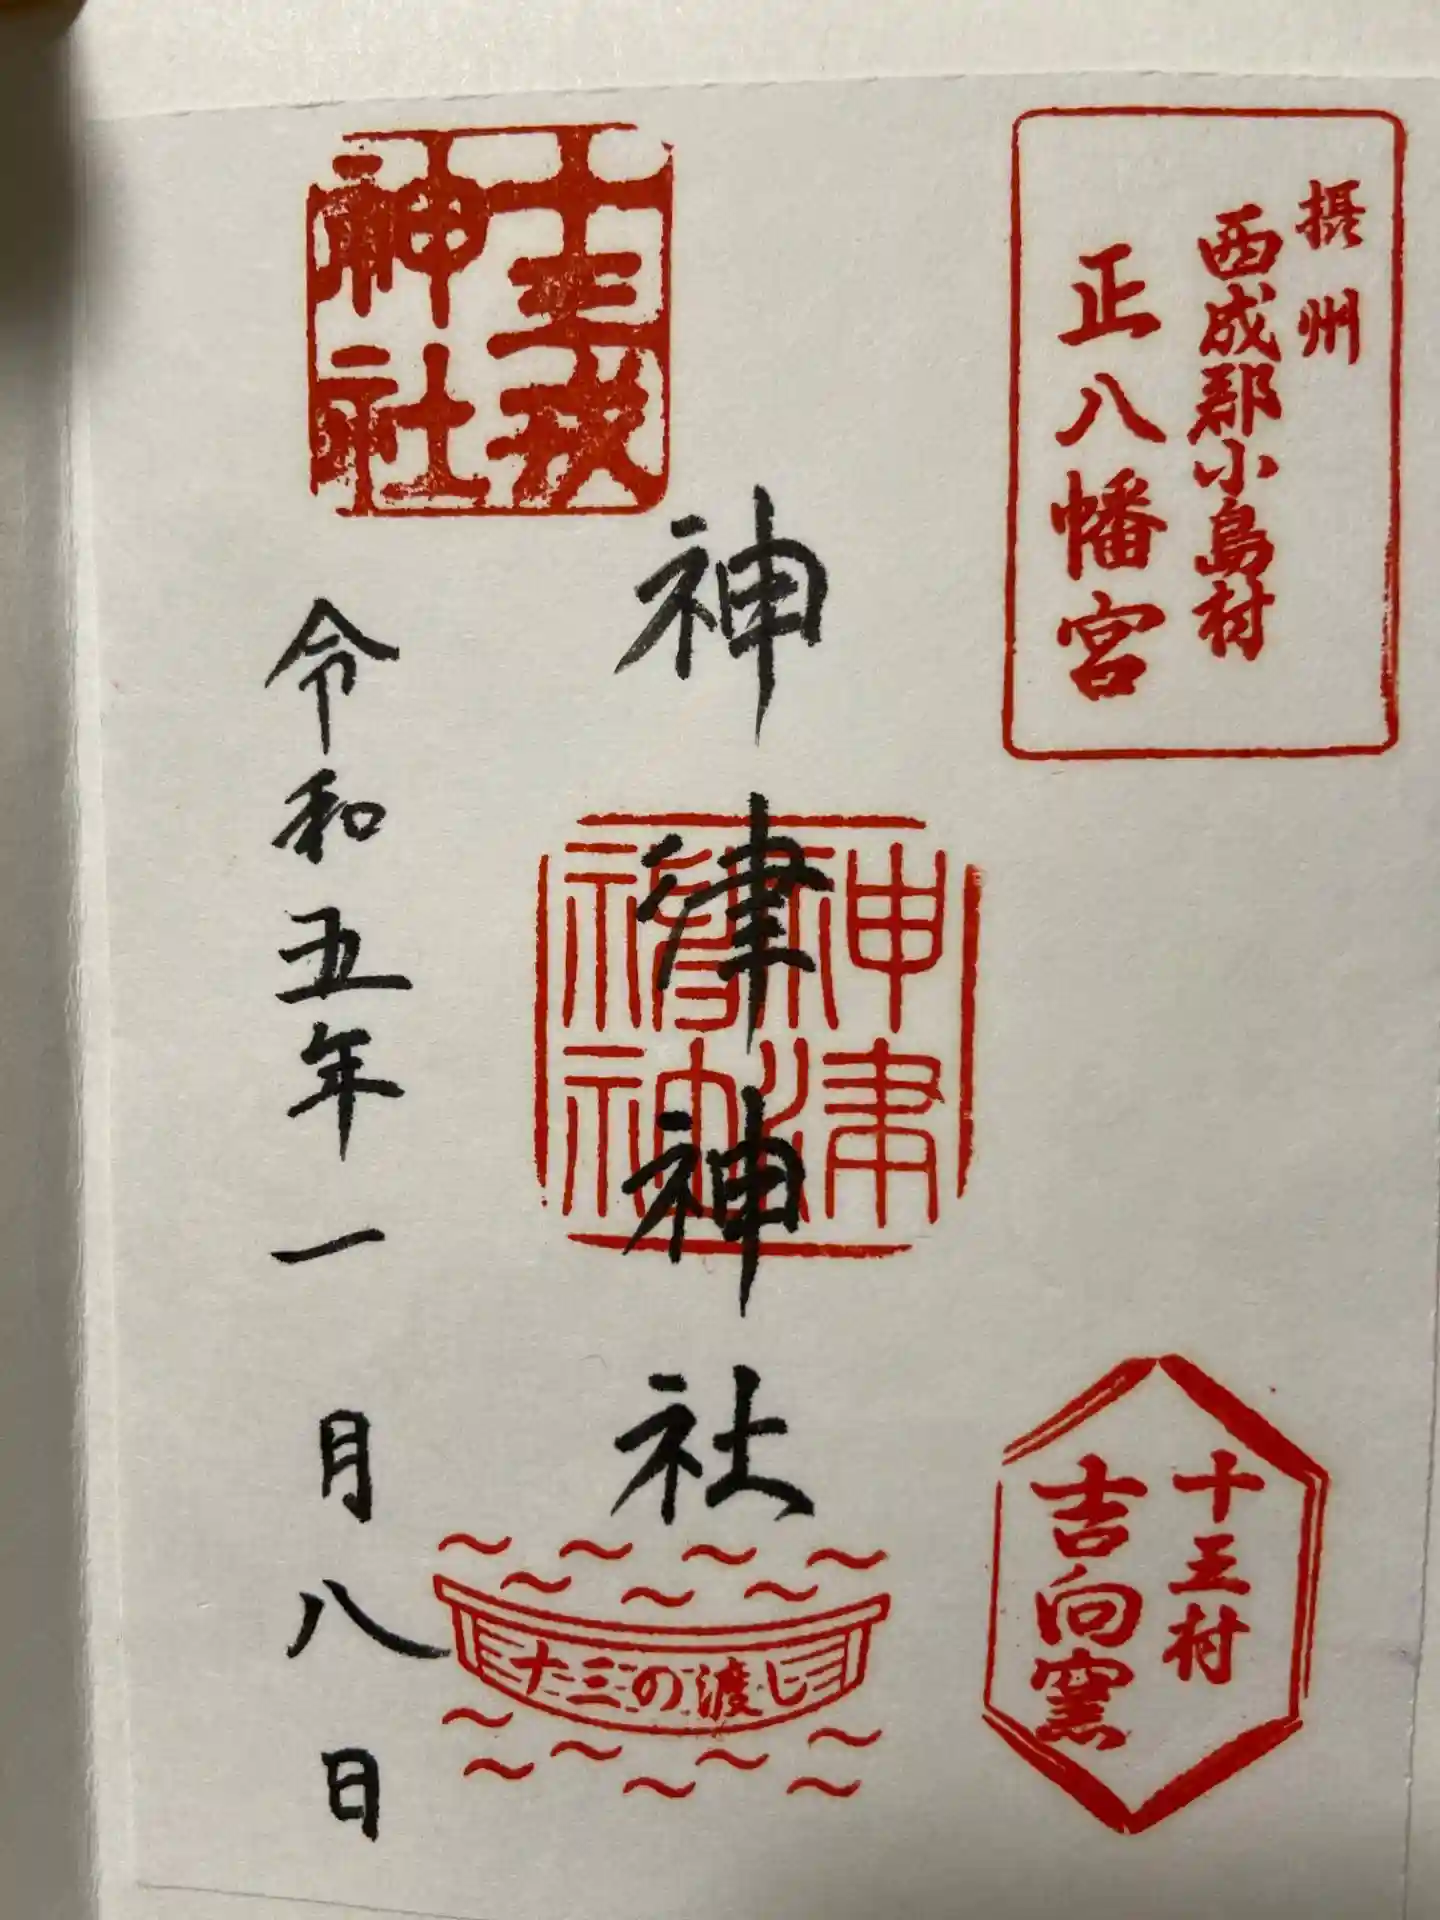 摂州
西成郡小島村
正八幡宮
十三村
吉向窯
神津神社
神津
十三の渡し
十三戎
神社
令和五年一月八日